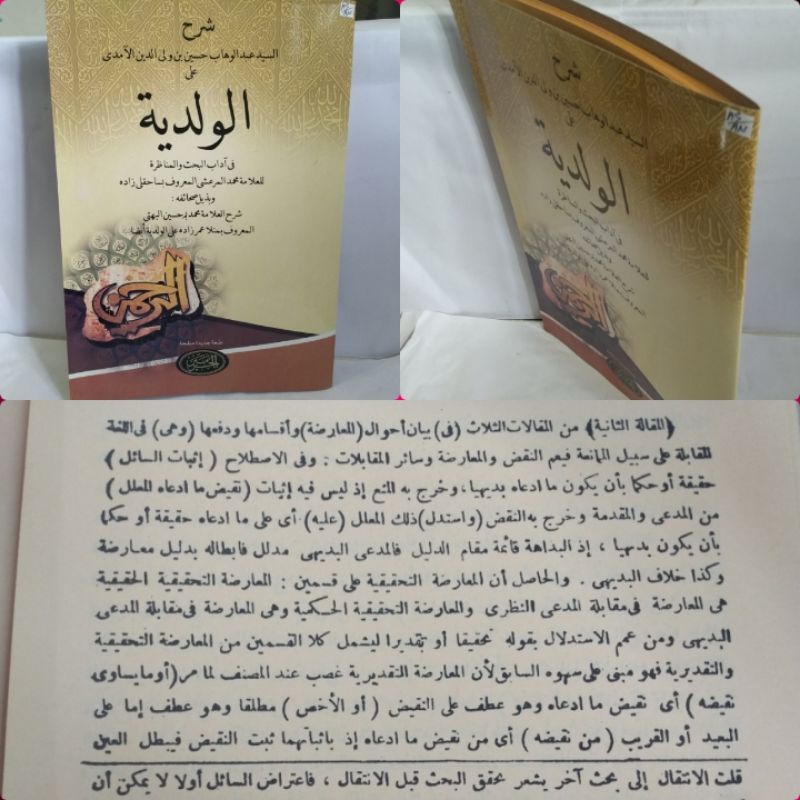 شرح
السيد عبد الوهاب حسين بن ولى الدين الآمدى
على
الولدية
فى آداب البحث والمناظرة
للعلامة محمد المرعشى المعروف بساحقلى زاده
وبذيل صحائفه :
شرح العلامة محمد بن حسين البهتى
المعروف بمنلا عمر زاده على الولدية أيضا
الرحمن
طبعة جديدة منقحة
شرح
السيد عبد الوهاب حسين بن ولى الدين الآمدى
على
الولدية
فى آداب البحث والمناظرة
للعلامة محمد المرعشى المعروف بساحقلى زاده
وبذيل صحائفه :
شرح العلامة محمد بن حسين البهتى
المعروف بمنلا عمر زاده على الولدية أيضا
(المقالة الثانية) من المقالات الثلاث (فى) بيان أحوال (المعارضة) وأقسامها ودفعها (وهى) فى اللغة
المقابلة على سبيل الممانعة فيعم النقض والمعارضة وسائر المقابلات . وفى الاصطلاح (إثبات السائل)
حقيقة أو حكما بأن يكون ما ادعاه بديهيا، وخرج به المنع إذ ليس فيه إثبات (نقيض ما ادعاه المعلل)
من المدعى والمقدمة وخرج به النقض (واستدل) ذلك المعلل (عليه) أى على ما ادعاه حقيقة أو حكما
بأن يكون بديهيا ، إذ البداهة قائمة مقام الدليل فالمدعى البديهى مدلل فابطاله بدليل معارضة
وكذا خلاف البديهى . والحاصل أن المعارضة التحقيقية على قسمين : المعارضة التحقيقية الحقيقية
هى المعارضة فى مقابلة المدعى النظرى والمعارضة التحقيقية الحكمية وهى المعارضة فى مقابلة المدعى
البديهى ومن عمم الاستدلال بقوله تحقيقا أو تقديرا ليشمل كلا القسمين من المعارضة التحقيقية
والتقديرية فهو مبنى على سهوه السابق لأن المعارضة التقديرية غصب عند المصنف لما مر (أو ما يساوى
نقيضه) أى نقيض ما ادعاه وهو عطف على النقيض (أو الأخص) مطلقا وهو عطف إما على
البعيد أو القريب (من نقيضه) أى من نقيض ما ادعاه إذ باثباتهما ثبت النقيض فيبطل العين
قلت الانتقال إلى بحث آخر يشعر بحقق البحث قبل الانتقال ، فاعتراض السائل أولا لا يمكن أن